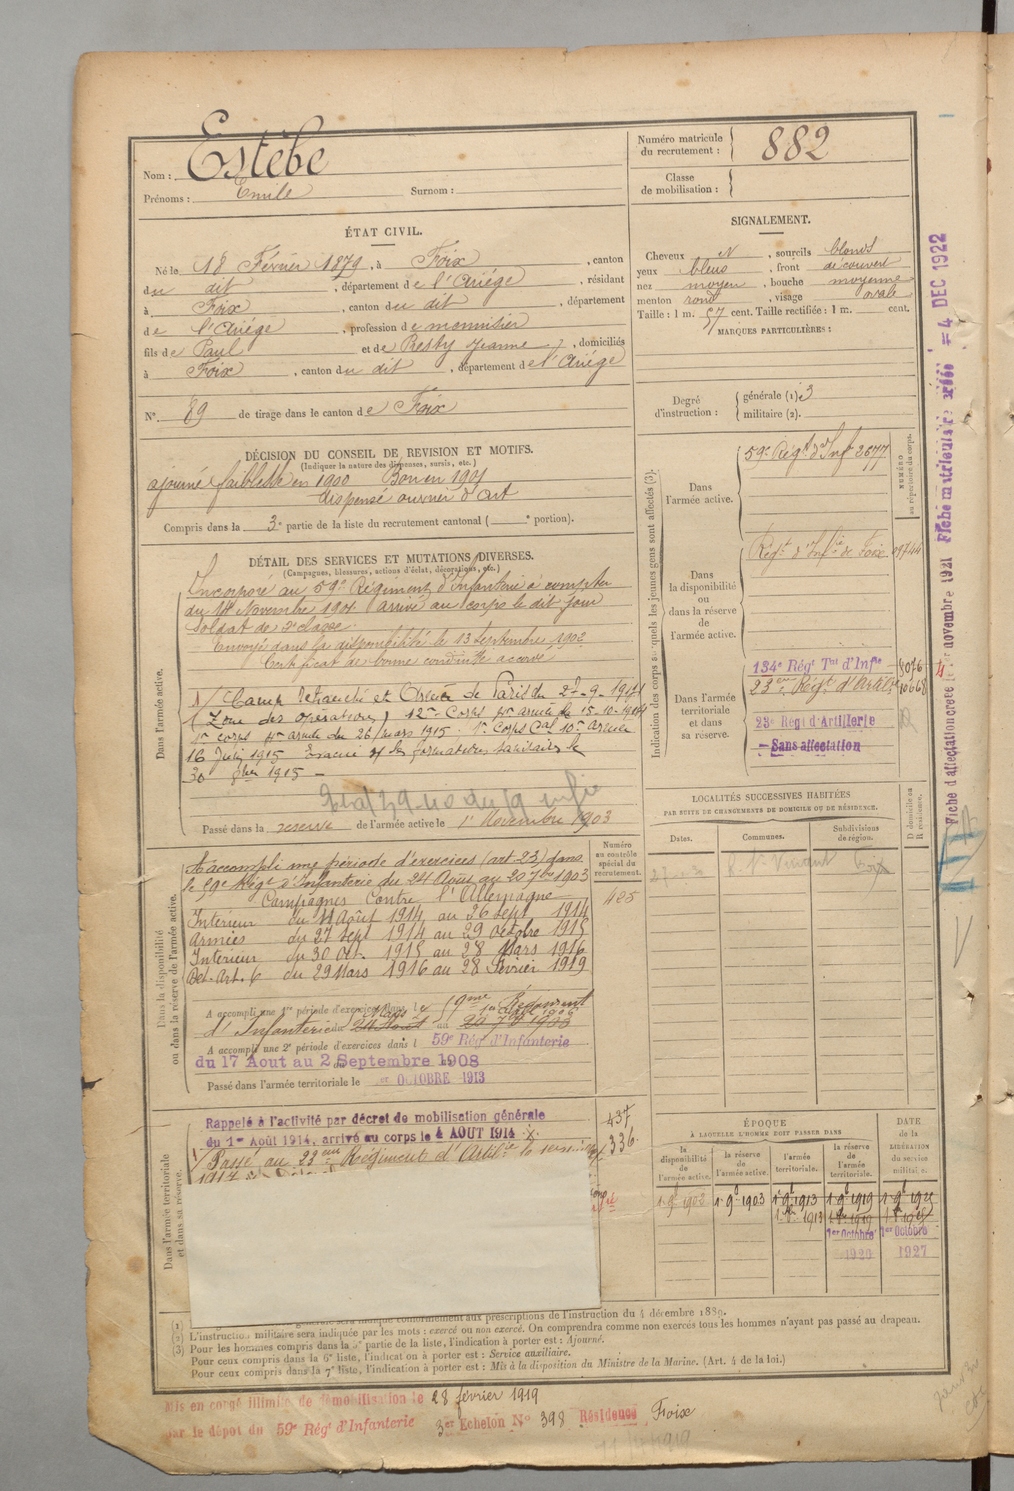 Nom : Estèbe
Prénoms : Emile Surnom :
Numéro matricule du recrutement : 882
Classe de mobilisation :
ÉTAT CIVIL.
Né le 18 Février 1879, à Foix, canton
du dit, département de l'Ariège, résidant
à Foix, canton du dit, département
de l'Ariège, profession de menuisier
fils de Paul et de Resty Jeanne, domiciliés
à Foix, canton du dit, département de l'Ariège
N° 89 de tirage dans le canton de Foix
SIGNALEMENT.
Cheveux N, sourcils blonds
yeux bleus, front découvert
nez moyen, bouche moyenne
menton rond, visage ovale
Taille : 1 m. 57 cent. Taille rectifiée : 1 m. cent.
MARQUES PARTICULIÈRES :
Degré d'instruction : générale (1) 3
militaire (2).
DÉCISION DU CONSEIL DE REVISION ET MOTIFS.
(Indiquer la nature des dispenses, sursis, etc.)
ajourné faiblesse en 1900 Bon en 1901
dispensé ouvrier d'art
Compris dans la 3e partie de la liste du recrutement cantonal ( e portion).
DÉTAIL DES SERVICES ET MUTATIONS DIVERSES.
(Campagnes, blessures, actions d'éclat, décorations, etc.)
Dans l'armée active.
Incorporé au 59e Régiment d'Infanterie à compter
du 14 Novembre 1901 arrivé au corps le dit jour
Soldat de 2e classe.
Envoyé dans la disponibilité le 13 Septembre 1902
Certificat de bonne conduite accordé
Camp retranché et Armée de Paris du 27-9-1914
(Zone des opérations) 12e Corps armée le 15-10-1914
1er corps armée du 26 mars 1915 ; 1er Corps Cal 10e armée
16 Juin 1915 Evacué les formations sanitaires le
30 1915 -
Passé dans la reserve de l'armée active le 1er Novembre 1903
Dans la disponibilité ou dans la réserve de l'armée active.
A accompli une période d'exercices (art. 23) dans
le 59e Régt d'Infanterie du 24 Août au 20 7bre 1903
Campagnes Contre l'Allemagne
Intérieur du 4 Août 1914 au 26 Sept 1914
Armées du 27 Sept 1914 au 29 octobre 1915
Intérieur du 30 Oct. 1915 au 28 Mars 1916
Det. Art. 6 du 29 Mars 1916 au 28 Février 1919
A accompli une 1re période d'exercices dans le 59me Régiment
d'Infanterie du 24 Août au 20 7bre 1903
A accompli une 2e période d'exercices dans l 59e Rég d'Infanterie
du 17 Aout au 2 Septembre 1908
Passé dans l'armée territoriale le 1er OCTOBRE 1913
Numéro au contrôle spécial du recrutement.
485
Dans l'armée territoriale et dans sa réserve.
Rappelé à l'activité par décret de mobilisation générale
du 1er Août 1914, arrivé au corps le 4 AOUT 1914
Passé au 23eme Régiment d'Artillie le
1917
437
336
Indication des corps auxquels les jeunes gens sont affectés (3).
NUMÉRO au répertoire du corps.
Dans l'armée active.
59e Régt d'Inf 2677
Dans la disponibilité ou dans la réserve de l'armée active.
Régt d'Infie de Foix
Dans l'armée territoriale et dans sa réserve.
134e Régt Tal d'Infie
23eme Régt d'Artillie
23e Régt d'Artillerie
Sans affectation
LOCALITÉS SUCCESSIVES HABITÉES
PAR SUITE DE CHANGEMENTS DE DOMICILE OU DE RÉSIDENCE.
Dates. Communes. Subdivisions de région. D domicile ou R résidence.
Foix
ÉPOQUE
À LAQUELLE L'HOMME DOIT PASSER DANS
la disponibilité de l'armée active. la réserve de l'armée active. l'armée territoriale. la réserve de l'armée territoriale.
DATE de la LIBÉRATION du service militaire.
1-9bre 1902 1-9bre 1903 1-9bre 1913 1-9bre 1919
1er Octobre 1er Octobre
1920 1927
= 4 DEC 1922
conformément aux prescriptions de l'instruction du 4 décembre 1889.
(2) L'instruction militaire sera indiquée par les mots : exercé ou non exercé. On comprendra comme non exercés tous les hommes n'ayant pas passé au drapeau.
(3) Pour les hommes compris dans la 5e partie de la liste, l'indication à porter est : Ajourné.
Pour ceux compris dans la 6e liste, l'indication à porter est : Service auxiliaire.
Pour ceux compris dans la 7e liste, l'indication à porter est : Mis à la disposition du Ministre de la Marine. (Art. 4 de la loi.)
Mis en congé illimité de démobilisation le 28 février 1919
par le dépôt du 59e Régt d'Infanterie 3er Echelon N° 398 Résidence Foix